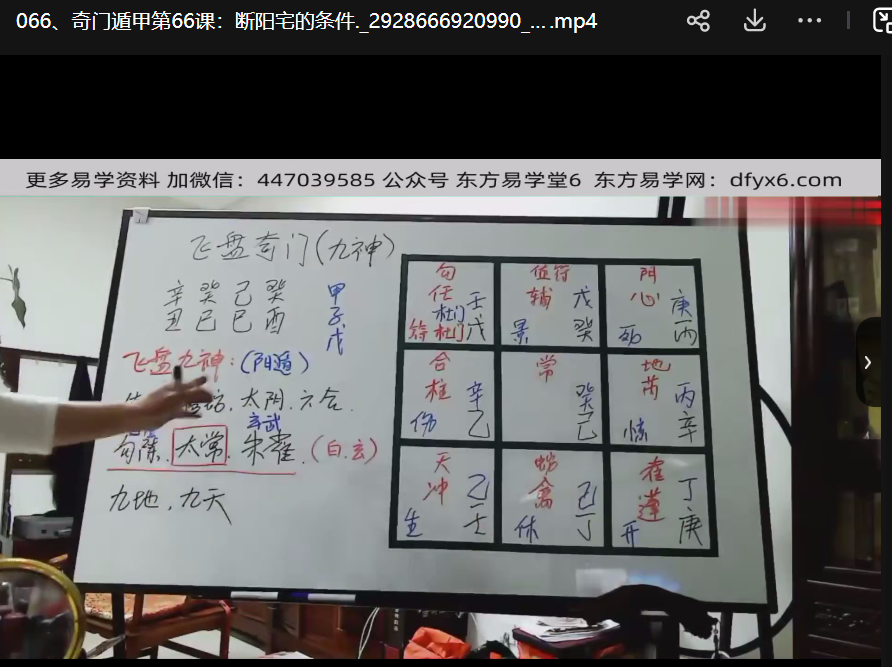 066、奇门遁甲第66课：断阳宅的条件._2928666920990_... .mp4
更多易学资料 加微信：447039585 公众号 东方易学堂6 东方易学网：dfyx6.com
飞盘奇门(九神)
辛 癸 己 癸
丑 巳 巳 酉
甲子戊
飞盘九神：(阳遁)
太阴.六合.
玄武
勾陈.太常.朱雀.(白.玄)
九地.九天
勾
任 壬
杜门
杜门 戊
值符
辅 戊
景 癸
阴
心 庚
死 丙
合
柱 辛
伤 乙
常
癸
己
地
芮 丙
惊 辛
天
冲 乙
生 壬
蛇
禽 己
休 丁
雀
蓬 丁
开 庚